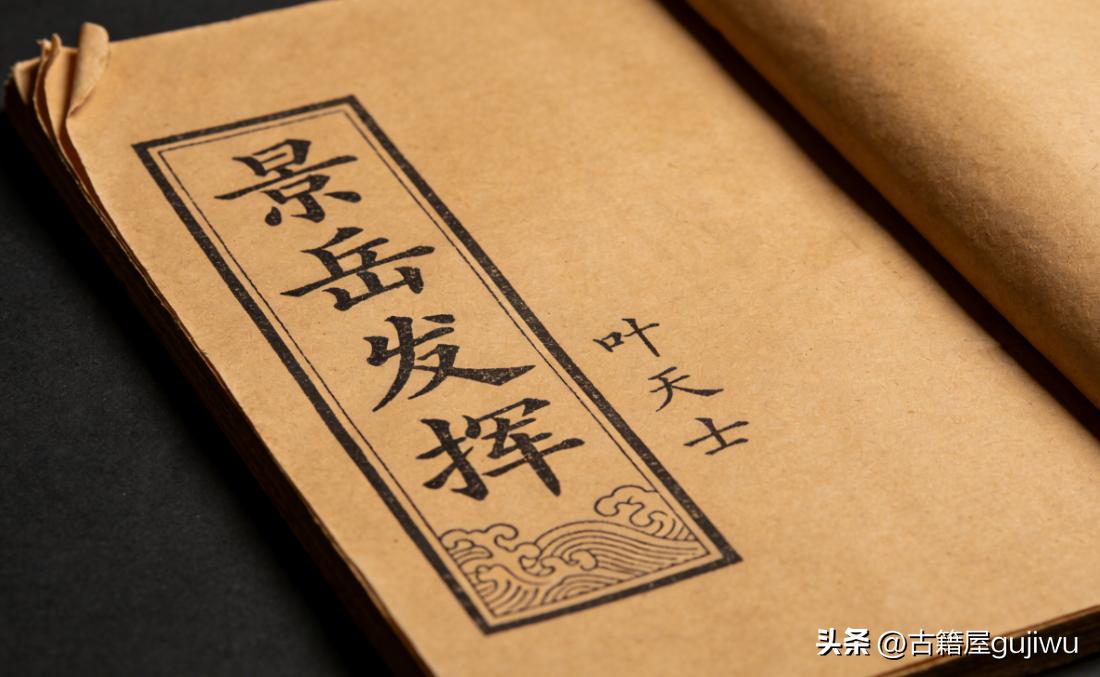 景岳发挥
叶天士
头条 @古籍屋gujiwu